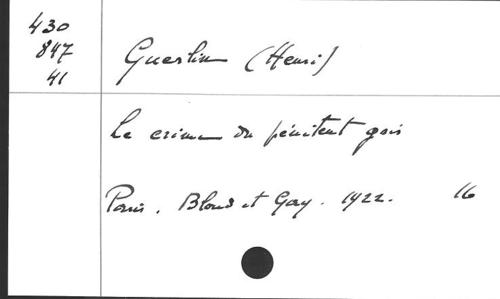 430
847
41
Guerlin (Henri)
Le crime du pénitent gris
Paris. Bloud et Gay. 1922. 16